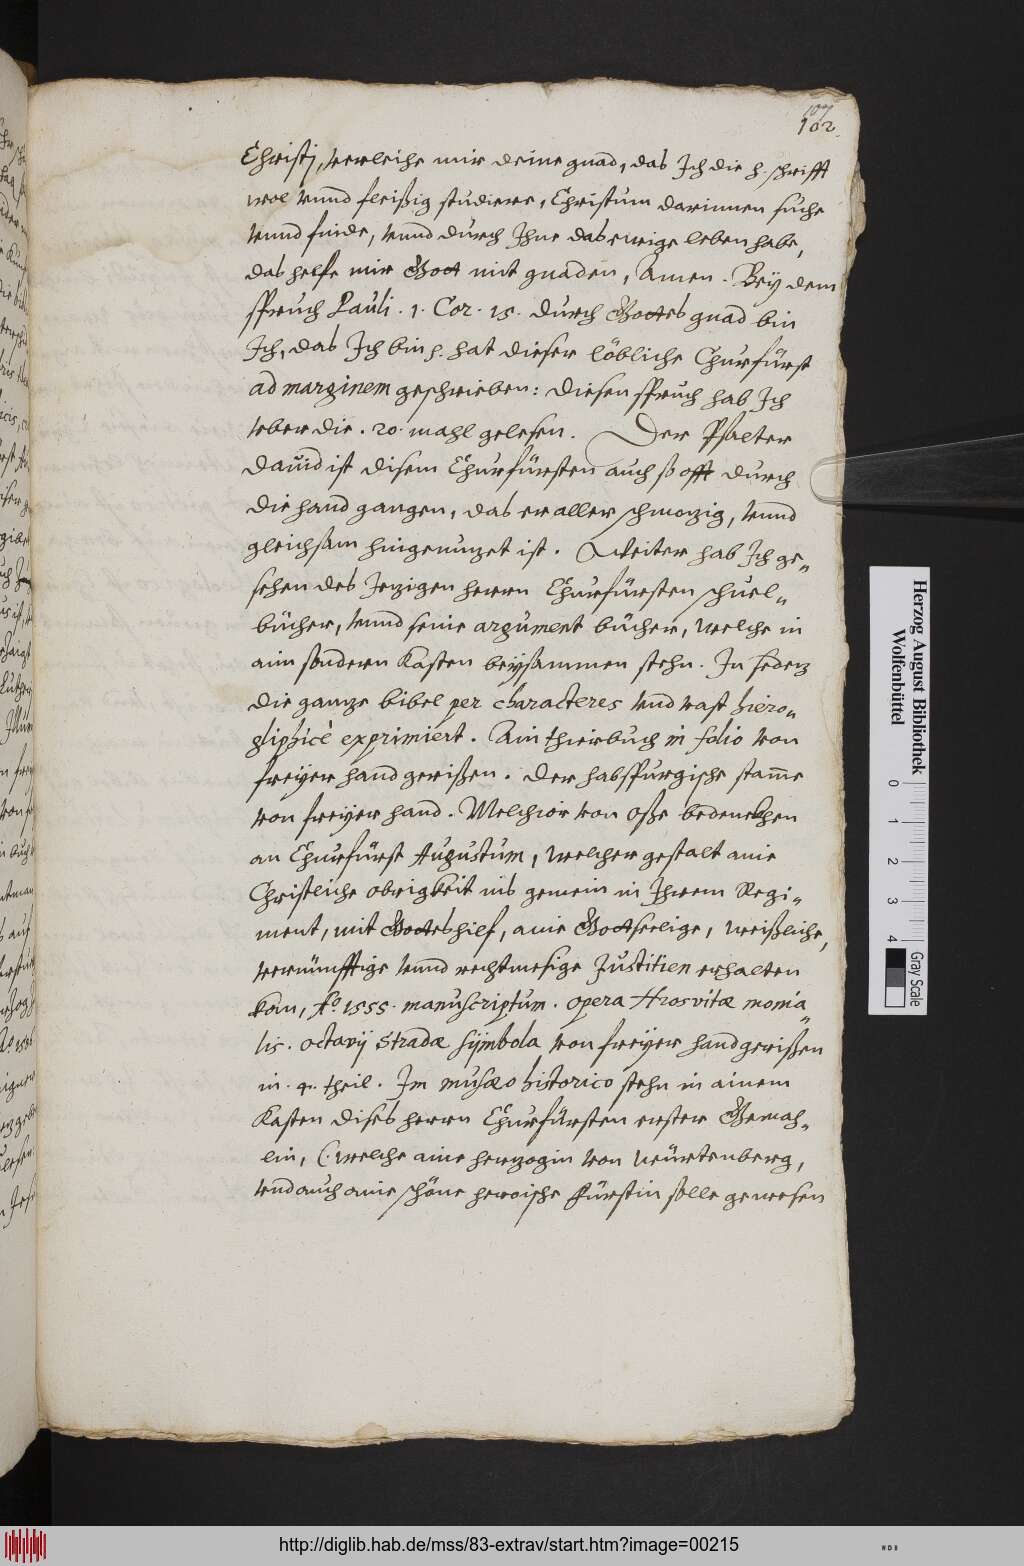 107
102.
Christj, verleihe mir deine gnad, das Ich die h. schrifft
wol vnnd fleißig studiere, Christum darinnen suche
vnnd finde, vnnd durch Ihne das ewige leben habe,
das helfe mir Gott mit gnaden, Amen. Beÿ dem
spruch Pauli. 1. Cor. 15. durch Gottes gnad bin
Ich, das Ich bin p. hat dieser löbliche Churfürst
ad marginem geschrieben: diesen spruch hab Ich
veber die. 20. mahl gelesen. Der Psalter
Dauid ist disem Churfürsten auch so offt durch
die hand gangen, das er aller schmozig, vnnd
gleichsam hingenuzet ist. Weiter hab Ich ge„
sehen des Jezigen herrn Churfürsten schuel„
bücher, vnnd seine argument bücher, welche in
aim sondern Kasten beÿsammen stehn. In sedez
die ganze bibel per characteres vnd vast hiero„
gliphicè exprimiert. Ain thierbuch in folio von
freÿer hand gerißen. der habspurgische stam̄e
von freÿer hand. Melchior von Oße bedencken
an Churfürst Augustum, welcher gestalt aine
Christliche obrigkeit ins gemein in Ihrem Regi„
ment, mit Gottes hilf, aine Gottseelige, weißliche,
vernünfftige vnnd rechtmesige Justitien erhalten
kön, Ao. 1555. manuscriptum. opera Hrosvitæ monia„
lis. Octavij Stradæ Sÿmbola von freÿer hand gerißen
in. 4. theil. Im musæo historico stehn in ainem
Kasten dises herrn Churfürsten erster Gemah„
lin, (. welche aine herzogin von Würtenberg,
vnd auch aine schöne heroische Fürstin solle gewesen
Herzog August Bibliothek
Wolfenbüttel
0 1 2 3 4
Gray Scale
http://diglib.hab.de/mss/83-extrav/start.htm?image=00215
WDB